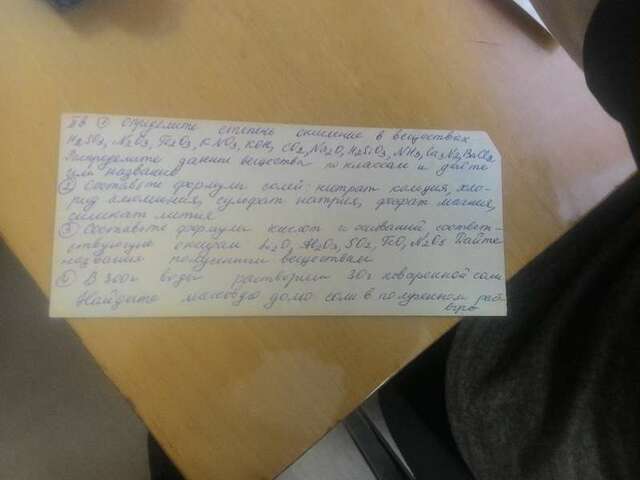 IIв ① Определите степень окисление в веществах
H2SO3, N2O3, Fe2O3, KNO3, KOH, CO2, Na2O, H2SiO3, NH3, Ca3N2, BaCl2
Распределите данные вещества по классам и дайте
им название
② Составьте формулы солей: нитрат кальция, хло-
рид алюминия, сульфат натрия, фосфат магния,
силикат лития
③ Составьте формулы кислот и оснований соответ-
ствующие оксидам Li2O, Al2O3, SO2, FeO, N2O5 Дайте
названия полученным веществам
④ В 300г воды растворили 30г поваренной соли
Найдите массовую долю соли в полученном раст-
воре